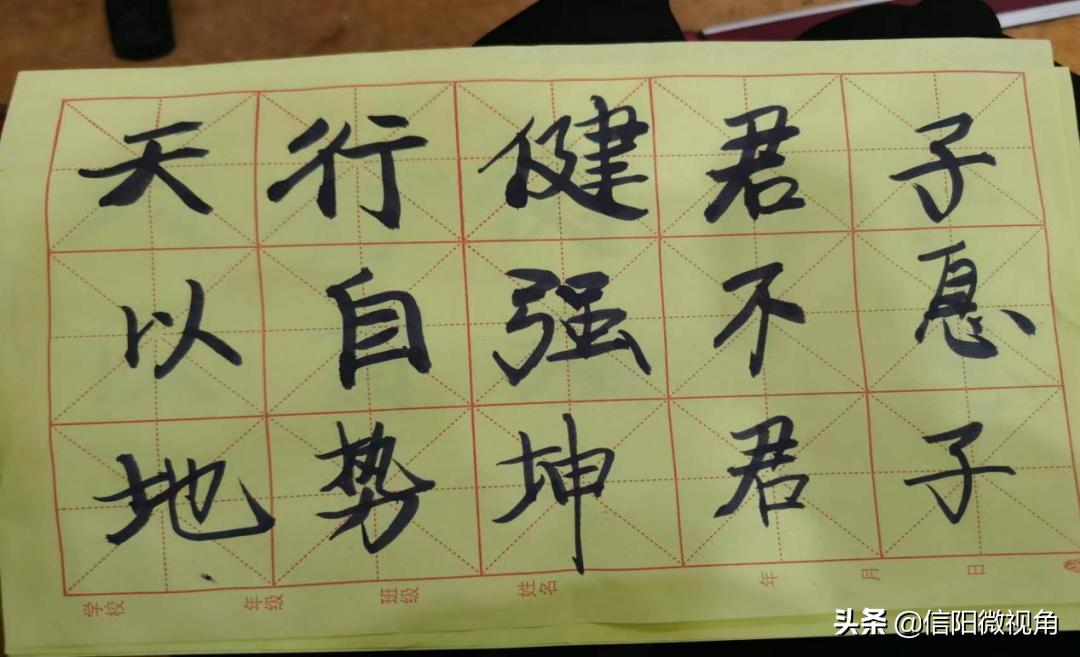 天行健君子
以自强不息
地势坤君子
学校 年级 班级 姓名 年 月 日
头条 @信阳微视角